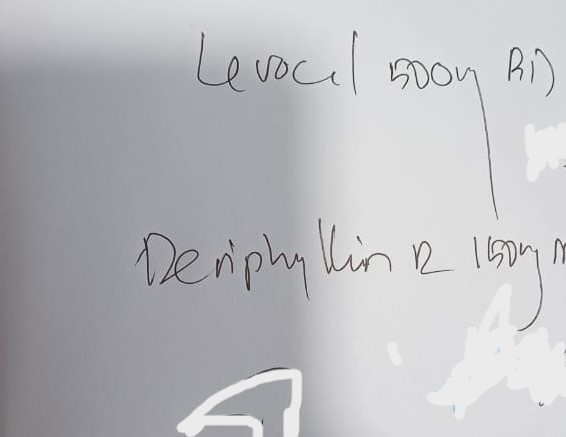 Levocel 500mg BD
Deriphyllin R 150mg